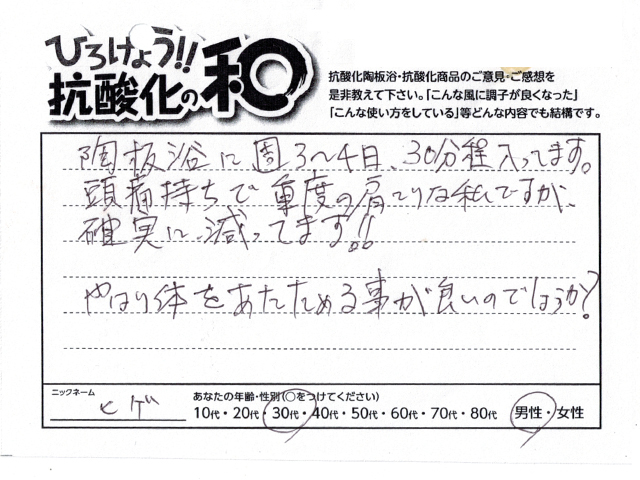 ひろげよう!!
抗酸化の和
抗酸化陶板浴・抗酸化商品のご意見・ご感想を
是非教えて下さい。「こんな風に調子が良くなった」
「こんな使い方をしている」等どんな内容でも結構です。
陶板浴に週3〜4日、30分程入ってます。
頭痛持ちで重度の肩こりな私ですが、
確実に減ってます!!
やはり体をあたためる事が良いのでしょうか?
ニックネーム
ヒゲ
あなたの年齢・性別(○をつけてください)
10代・20代・30代・40代・50代・60代・70代・80代
男性・女性